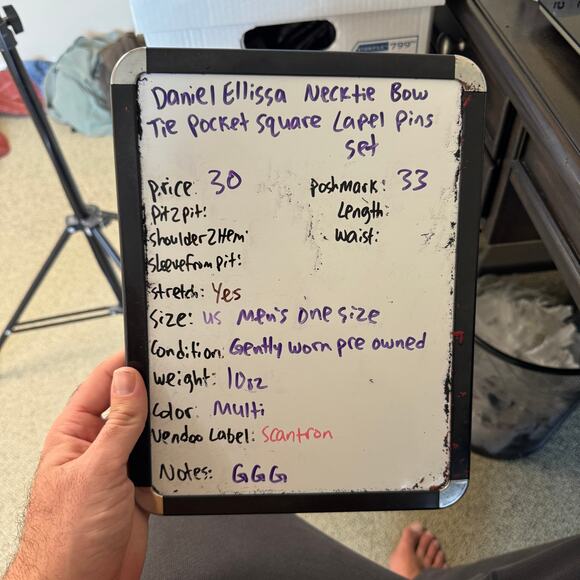 Daniel Ellissa Necktie Bow
Tie Pocket Square Lapel Pins
set
price: 30
Poshmark: 33
Pit2pit:
Length:
Shoulder2Hem:
Waist:
Sleevefrompit:
Stretch: Yes
Size: US Men's One Size
Condition: Gently worn pre owned
Weight: 10oz
Color: Multi
Vendoo Label: Scantron
Notes: GGG
799